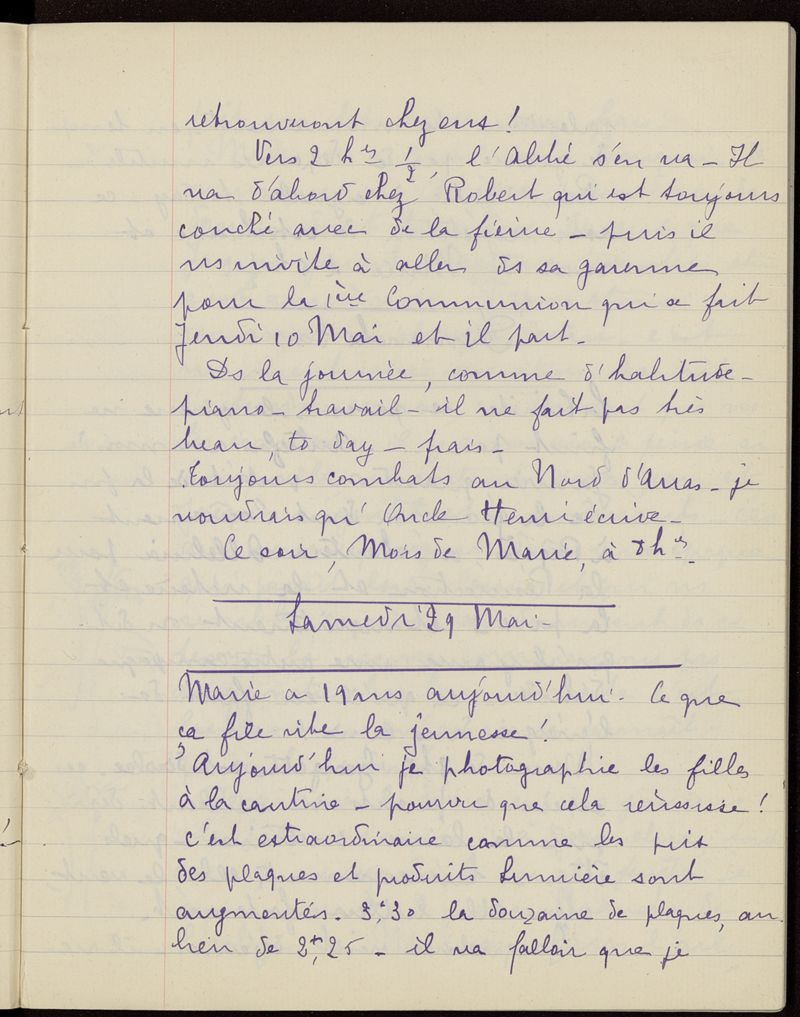 retrouveront chez eux !
Vers 2 hes 1/2, l'Abbé s'en va - Il
va d'abord chez Robert qui est toujours
couché avec de la fièvre - puis il
ns invite à aller ds sa garenne
pour la 1ère Communion qui se fait
Jeudi 10 Mai et il part -
Ds la journée, comme d'habitude -
piano - travail - il ne fait pas très
beau, to day - frais -
Toujours combats au Nord d'Arras - je
voudrais qu'Oncle Henri écrive -
Ce soir, Mois de Marie, à 8 hes -
Samedi 29 Mai -
Marie a 19 ans aujourd'hui - Ce que
ça file vite la jeunesse !
Aujourd'hui je photographie les filles
à la cantine - pourvu que cela réussisse !
C'est extraordinaire comme les prix
des plaques et produits Lumière sont
augmentés - 3f,30 la douzaine de plaques, au
lieu de 2f,25 - il va falloir que je